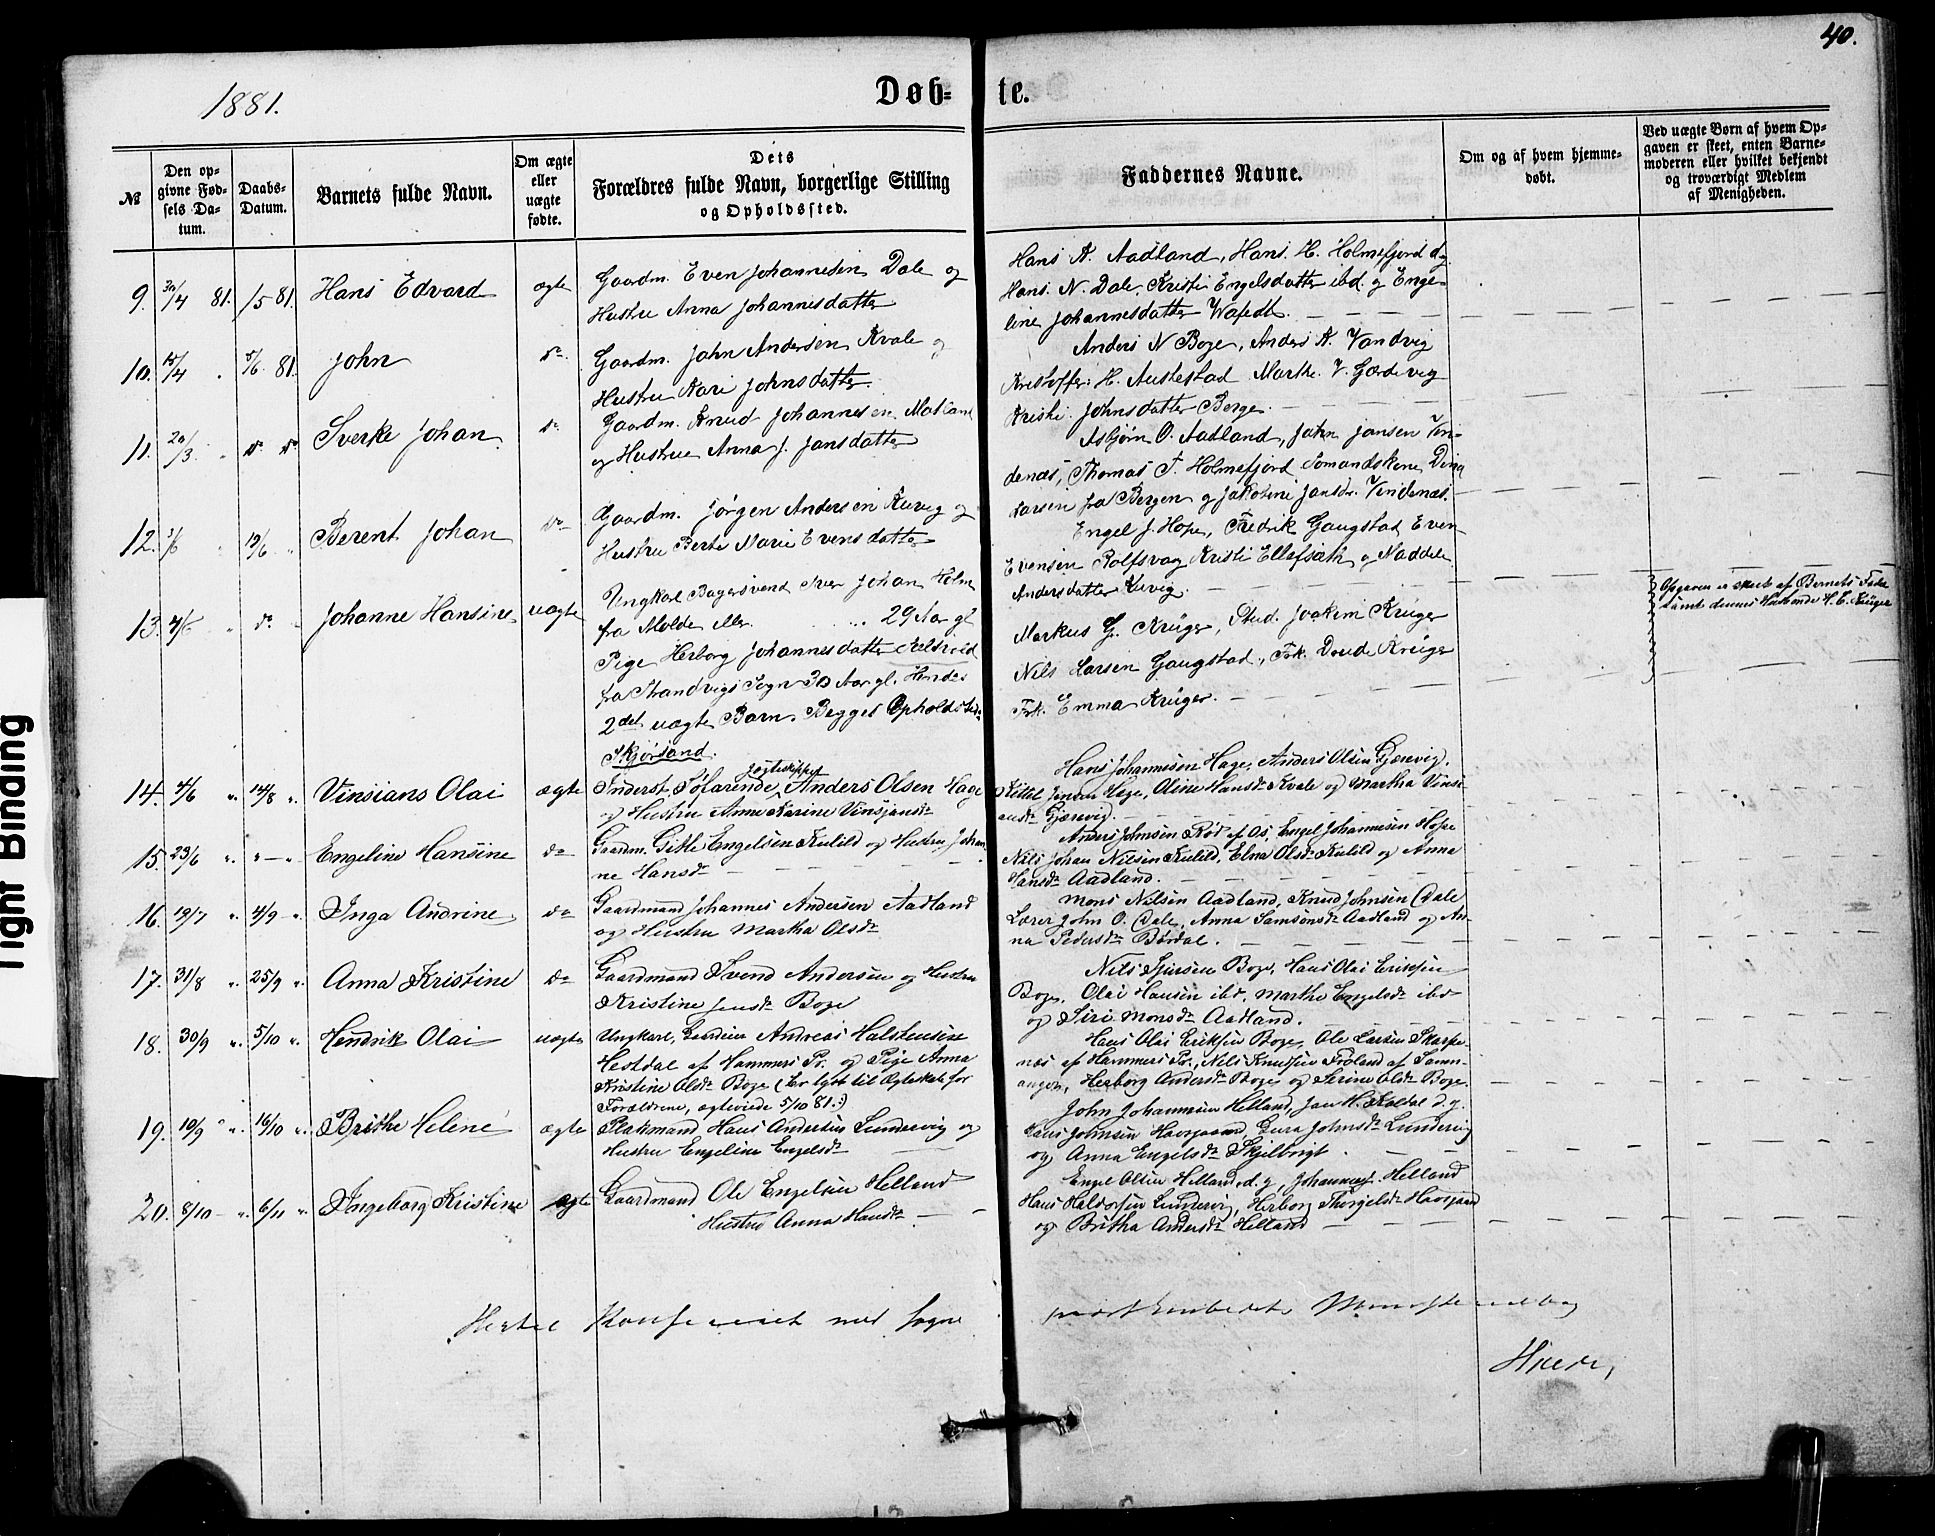 40.
1881.
Døb= te.
№
Den op=
givne Fød=
sels Da=
tum.
Daabs=
Datum.
Barnets fulde Navn.
Om ægte
eller
uægte
fødte.
Dets
Forældres fulde Navn, borgerlige Stilling
og Opholdssted.
Faddernes Navne.
Om og af hvem hjemme=
døbt.
Ved uægte Børn af hvem Op=
gaven er skeet, enten Barne=
moderen eller hvilket bekjendt
og troværdigt Medlem
af Menigheden.
9. 30/4 81. 1/5 81. Hans Edvard ægte
Gaardm. Even Johannesen Dale og
Hustru Anna Johannesdatter
Hans A. Aadland, Hans H. Holmefjord d.y.
Hans N. Dale, Kristi Engelsdatter ibd. og Enge-
line Johannesdatter
10. 15/4 5/6 81. John do
Gaardm. John Andersen Kvale og
Hustru Kari Johnsdatter
Anders N Boge, Anders A. Vandvig
Kristoffer H. Austestad Marthe V. Gjerdevig
Kristi Johnsdatter Berge.
11. 20/3 do do Sverke Johan do
Gaardm. Knud Johannesen Matland
og Hustru Anna J. Jansdatter
Asbjørn O. Aadland, John Jansen Vin-
denæs, Thomas T. Holmefjord Sømandskone Dina
Larsen fra Bergen og Jakobine Jansdr. Vindenæs.
12. 1/6 19/6 Berent Johan do
Gaardm. Jørgen Andersen Kuvig og
Hustru Berte Marie Evensdatter
Engel J. Hope, Fredrik Gaugstad Even
Evensen Rolfsvag Kristi og
Andersdatter Kuvig.
13. do Johanne Hansine uægte
Ungkarl Bagersvend Iver Johan Holm
fra Molde 29 Aar gl
Pige Herborg Johannesdatter
fra Strandvigs Sogn 30 Aar gl. Hendes
2det uægte Barn. Begges Opholdsted
Skjørsand.
Markus G. Krüger, Stud. Joakim Krüger
Nils Larsen Gaugstad, Frk. Doude Krüger
Frk. Emma Krüger.
Opgaven er skeet af Barnets Fader
samt dennes Husbonde H. C. Krüger
14. 4/6 14/8 Vinsians Olai ægte
Jagteskipper
Inderst, Søfarende, Anders Olsen Hage
og Hustru Anne Karine Vinsjansdr
Hans Johannesen Hage, Anders Olsen Gjærevig,
Kittil Jensen Hage, Oline Hansdr Kvale og Martha Vinsi-
ansdr Gjærevig.
15. 23/6 " — " Engeline Hansine do
Gaardm. Gitle Engelsen Kulild og Hustru Johan-
ne Hansdr
Anders Johnsen Rød af Os, Engel Johannesen Hope
Nils Johan Nilsen Kulild, Elna Olsdr Kulild og Anna
Hansdr Aadland.
16. 19/7 4/9 Inga Andrine do
Gaardmand Johannes Andersen Aadland
og Hustru Martha Olsdr
Mons Nilsen Aadland, Knud Johnsen Dale
Lærer John O. Dale, Anna Samsonsdr Aadland og An-
na Pedersdr Børdal.
17. 31/8 25/9 Anna Kristine do
Gaardmand Svend Andersen og Hustru
Kristine Jensdr Boge
Nils Sjursen Boge, Hans Olai Eriksen
Boge, Olai Hansen ibd, Marthe Engelsdr ibd
og Siri Monsdr Aadland.
18. 30/9 5/10 Hendrik Olai uægte
Ungkarl, Andreas Halstensen
Hestdal af Hammers Pr. og Pige Anna
Kristine Olsdr Boge (Før lyst til Ægteskab for
Forældrene, ægteviede 5/10 81.)
Hans Olai Eriksen Boge, Ole Larsen Skarpe-
næs af Hammers Pr., Nils Knudsen Frøland af Samn-
anger, Herborg Andersdr Boge og Serine Olsdr Boge.
19. 10/9 16/10 Brithe Helene ægte
Pladsmand Hans Andersen Lundervig og
Hustru Engeline Engelsdr
John Johannesen Helland, Jan H. Koldal d.y.
Hans Johnsen Havsgaard, Gura Johnsdr Lundervig
og Anna Engelsdr Skjelbregt.
20. 8/10 6/11 Ingeborg Kristine ægte
Gaardmand Ole Engelsen Helland
Hustru Anna Hansdr
Engel Olsen Helland d.y., Johannes Helland
Hans Haldorsen Lundervig, Herborg Thorgilsdr Havsgaard
og Britha Andersdr Helland
Hertil Konfereret med Sogne
Tight Binding